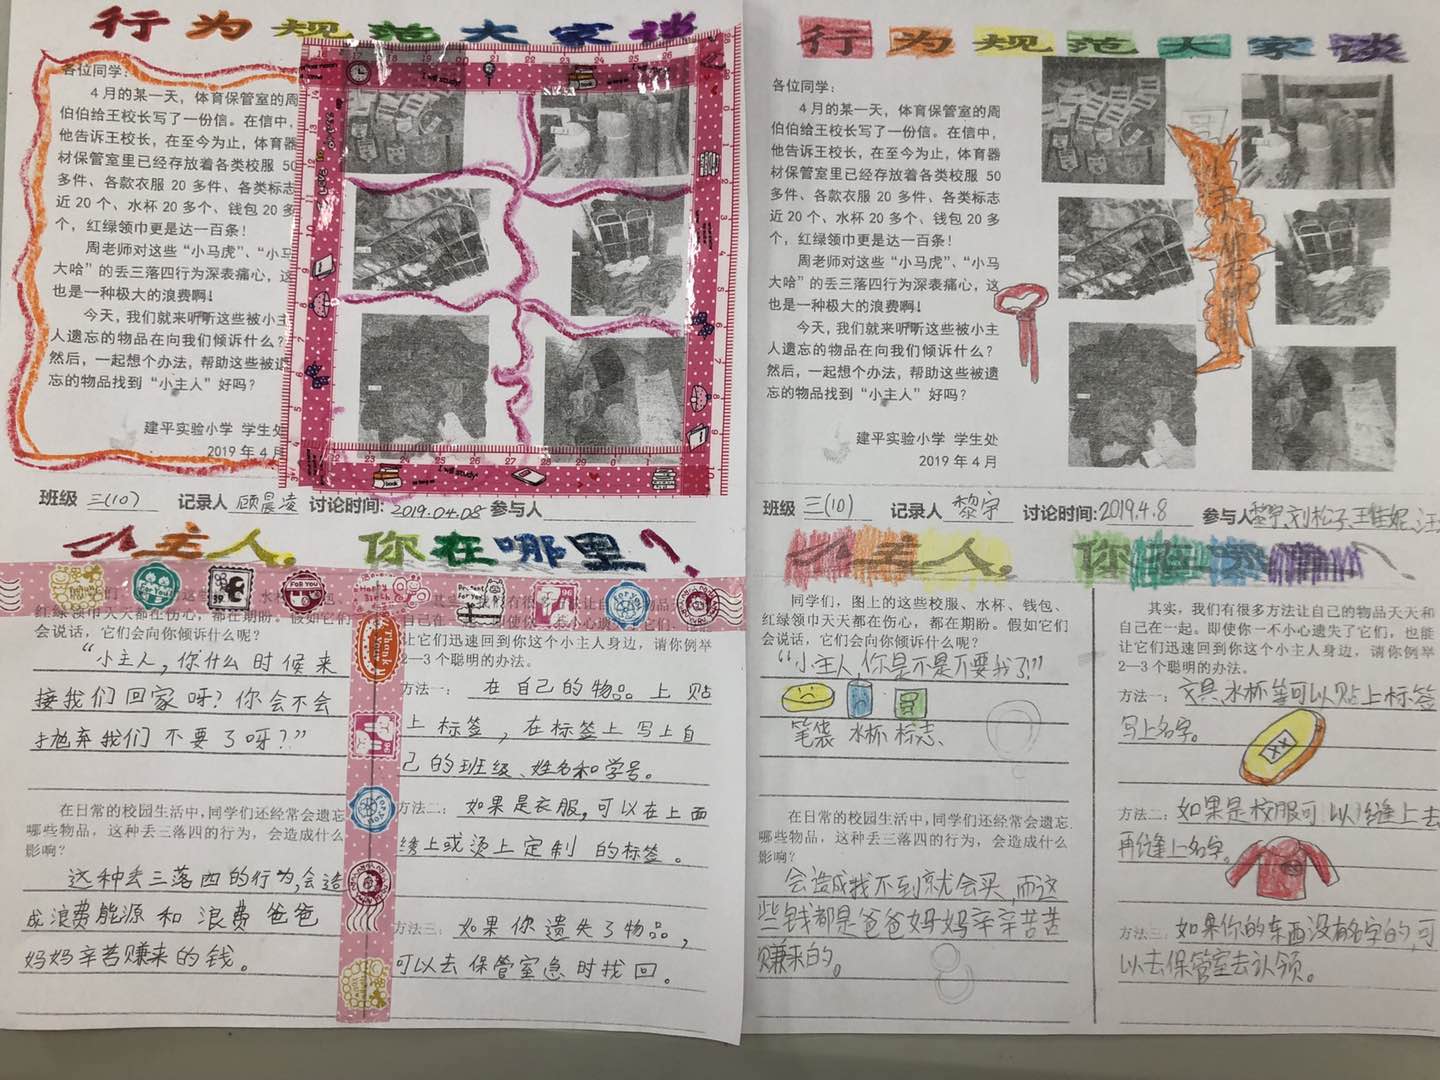 行为规范大家谈
各位同学：
4月的某一天，体育保管室的周
伯伯给王校长写了一份信。在信中，
他告诉王校长，在至今为止，体育器
材保管室里已经存放着各类校服 50
多件、各款衣服 20 多件、各类标志
近 20 个、水杯 20 多个、钱包 20 多
个，红绿领巾更是达一百条！
周老师对这些“小马虎”、“小马
大哈”的丢三落四行为深表痛心，这
也是一种极大的浪费啊！
今天，我们就来听听这些被小主
人遗忘的物品在向我们倾诉什么？
然后，一起想个办法，帮助这些被遗
忘的物品找到“小主人”好吗？
建平实验小学 学生处
2019 年 4 月
班级 三(10) 记录人 顾晨凌 讨论时间: 2019.04.08 参与人
小主人，你在哪里？
红绿领巾天天都在伤心，都在期盼。假如它们
会说话，它们会向你倾诉什么呢？
“小主人，你什么时候来
接我们回家呀？你会不会
抛弃我们不要了呀？”
在日常的校园生活中，同学们还经常会遗忘
哪些物品，这种丢三落四的行为，会造成什么
影响？
这种丢三落四的行为，会造
成浪费能源和浪费爸爸
妈妈辛苦赚来的钱。
让它们迅速回到你这个小主人身边，请你例举
2—3 个聪明的办法。
方法一：在自己的物品上贴
上标签，在标签上写上自
己的班级、姓名和学号。
方法二：如果是衣服，可以在上面
绣上或烫上定制的标签。
方法三：如果你遗失了物品，
可以去保管室急时找回。
行为规范大家谈
各位同学：
4月的某一天，体育保管室的周
伯伯给王校长写了一份信。在信中，
他告诉王校长，在至今为止，体育器
材保管室里已经存放着各类校服 50
多件、各款衣服 20 多件、各类标志
近 20 个、水杯 20 多个、钱包 20 多
个，红绿领巾更是达一百条！
周老师对这些“小马虎”、“小马
大哈”的丢三落四行为深表痛心，这
也是一种极大的浪费啊！
今天，我们就来听听这些被小主
人遗忘的物品在向我们倾诉什么？
然后，一起想个办法，帮助这些被遗
忘的物品找到“小主人”好吗？
建平实验小学 学生处
2019 年 4 月
班级 三(10) 记录人 黎宇 讨论时间: 2019.4.8 参与人 黎宇 刘松子
小主人，你在哪里？
同学们，图上的这些校服、水杯、钱包、
红绿领巾天天都在伤心，都在期盼。假如它们
会说话，它们会向你倾诉什么呢？
“小主人你是不是不要我了！”
笔袋 水杯 标志、
在日常的校园生活中，同学们还经常会遗忘
哪些物品，这种丢三落四的行为，会造成什么
影响？
会造成找不到就会买，而这
些钱都是爸爸妈妈辛辛苦苦
赚来的。
其实，我们有很多方法让自己的物品天天和
自己在一起。即使你一不小心遗失了它们，也能
让它们迅速回到你这个小主人身边，请你例举
2—3 个聪明的办法。
方法一：文具、水杯等可以贴上标签
写上名字。
方法二：如果是校服可以缝上去
再缝上名字。
方法三：如果你的东西没有名字的，可
以去保管室去认领。